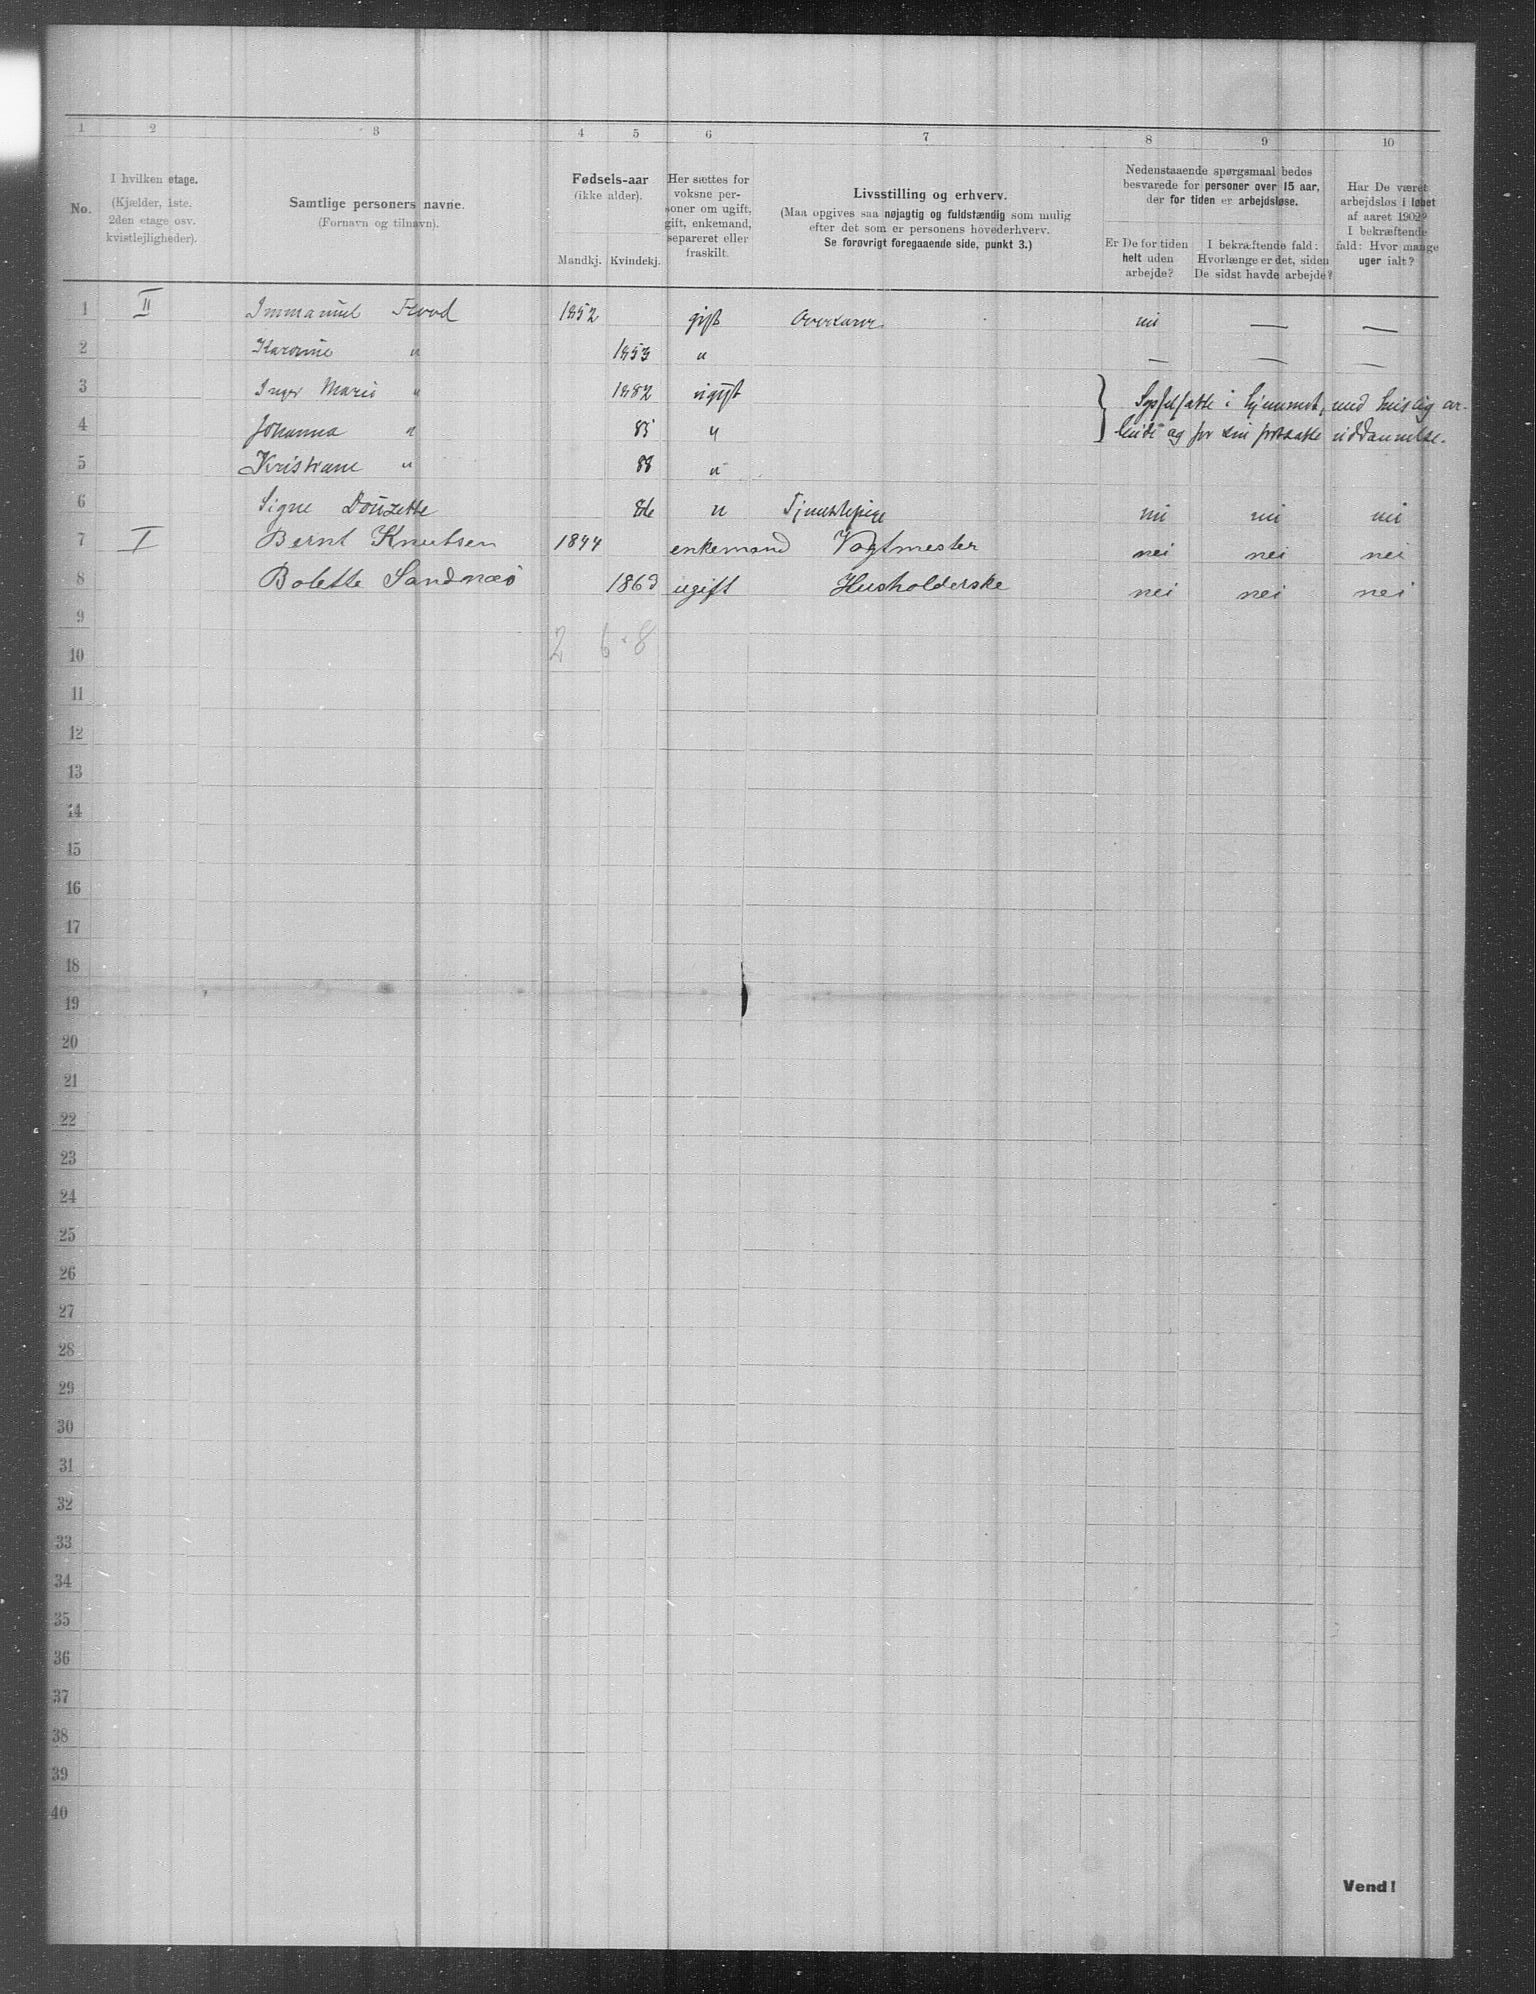 1 2 3 4 5 6 7 8 9 10
No.
I hvilken etage.
(Kjælder, 1ste.
2den etage osv.
kvistlejligheder).
Samtlige personers navne.
(Fornavn og tilnavn).
Fødsels-aar
(ikke alder).
Mandkj. Kvindekj.
Her sættes for
voksne per-
soner om ugift,
gift, enkemand,
separeret eller
fraskilt.
Livsstilling og erhverv.
(Maa opgives saa nøjagtig og fuldstændig som mulig
efter det som er personens hovederhverv.
Se forøvrigt foregaaende side, punkt 3.)
Nedenstaaende spørgsmaal bedes
besvarede for personer over 15 aar,
der for tiden er arbejdsløse.
Er De for tiden
helt uden
arbejde?
I bekræftende fald:
Hvorlænge er det, siden
De sidst havde arbejde?
Har De været
arbejdsløs i løbet
af aaret 1902?
I bekræftende
fald: Hvor mange
uger ialt?
1 II Immanuel Flood 1852 gift nei — —
2 " 1853 " — — —
3 Inger Marie " 1882 ugift } Sysselsatte i hjemmet, med huslig ar-
4 Johanna " 85 " beide og for sin fortsatte uddannelse.
5 Kristiane " 88 "
6 Signe Douzette " Tjenestepige nei nei nei
7 I Bernt Knutsen 1844 enkemand Vagtmester nei nei nei
8 Bolette Sandnæs 1869 ugift Husholderske nei nei nei
9
2 6 · 8
10
11
12
13
14
15
16
17
18
19
20
21
22
23
24
25
26
27
28
29
30
31
32
33
34
35
36
37
38
39
40
Vend!